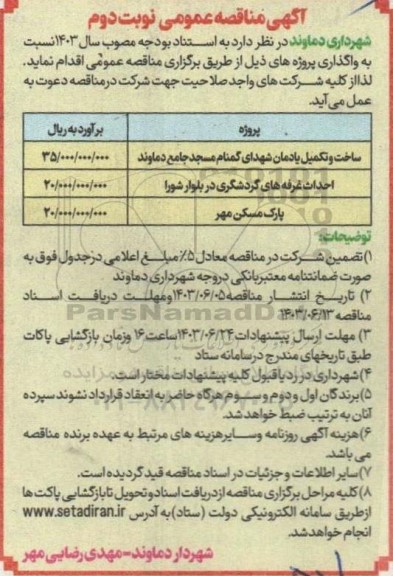 آگهی مناقصه عمومی نوبت دوم
شهرداری دماوند در نظر دارد به استناد بودجه مصوب سال ۱۴۰۳ نسبت
به واگذاری پروژه های ذیل از طریق برگزاری مناقصه عمومی اقدام نماید.
لذا از کلیه شرکت های واجد صلاحیت جهت شرکت در مناقصه دعوت به
عمل می آید.
پروژه برآورد به ریال
ساخت و تکمیل یادمان شهدای گمنام مسجد جامع دماوند ۳۵/۰۰۰/۰۰۰/۰۰۰
احداث غرفه های گردشگری در بلوار شورا ۲۰/۰۰۰/۰۰۰/۰۰۰
پارک مسکن مهر ۲۰/۰۰۰/۰۰۰/۰۰۰
توضیحات:
۱) تضمین شرکت در مناقصه معادل ۵٪ مبلغ اعلامی در جدول فوق به
صورت ضمانتنامه معتبر بانکی در وجه شهرداری دماوند
۲) تاریخ انتشار مناقصه ۱۴۰۳/۰۶/۰۵ و مهلت دریافت اسناد
مناقصه ۱۴۰۳/۰۶/۱۳
ParsNamadData
۳) مهلت ارسال پیشنهادات ۱۴۰۳/۰۶/۲۴ ساعت ۱۶ و زمان بازگشایی پاکات
طبق تاریخهای مندرج در سامانه ستاد
۴) شهرداری در رد یا قبول کلیه پیشنهادات مختار است.
۵) برندگان اول و دوم و سوم هرگاه حاضر به انعقاد قرارداد نشوند سپرده
آنان به ترتیب ضبط خواهد شد.
۶) هزینه آگهی روزنامه و سایر هزینه های مرتبط به عهده برنده مناقصه
می باشد.
۷) سایر اطلاعات و جزئیات در اسناد مناقصه قید گردیده است.
۸) کلیه مراحل برگزاری مناقصه از دریافت اسناد و تحویل تا بازگشایی پاکت ها
از طریق سامانه الکترونیکی دولت (ستاد) به آدرس www.setadiran.ir
انجام خواهد شد.
شهردار دماوند - مهدی رضایی مهر